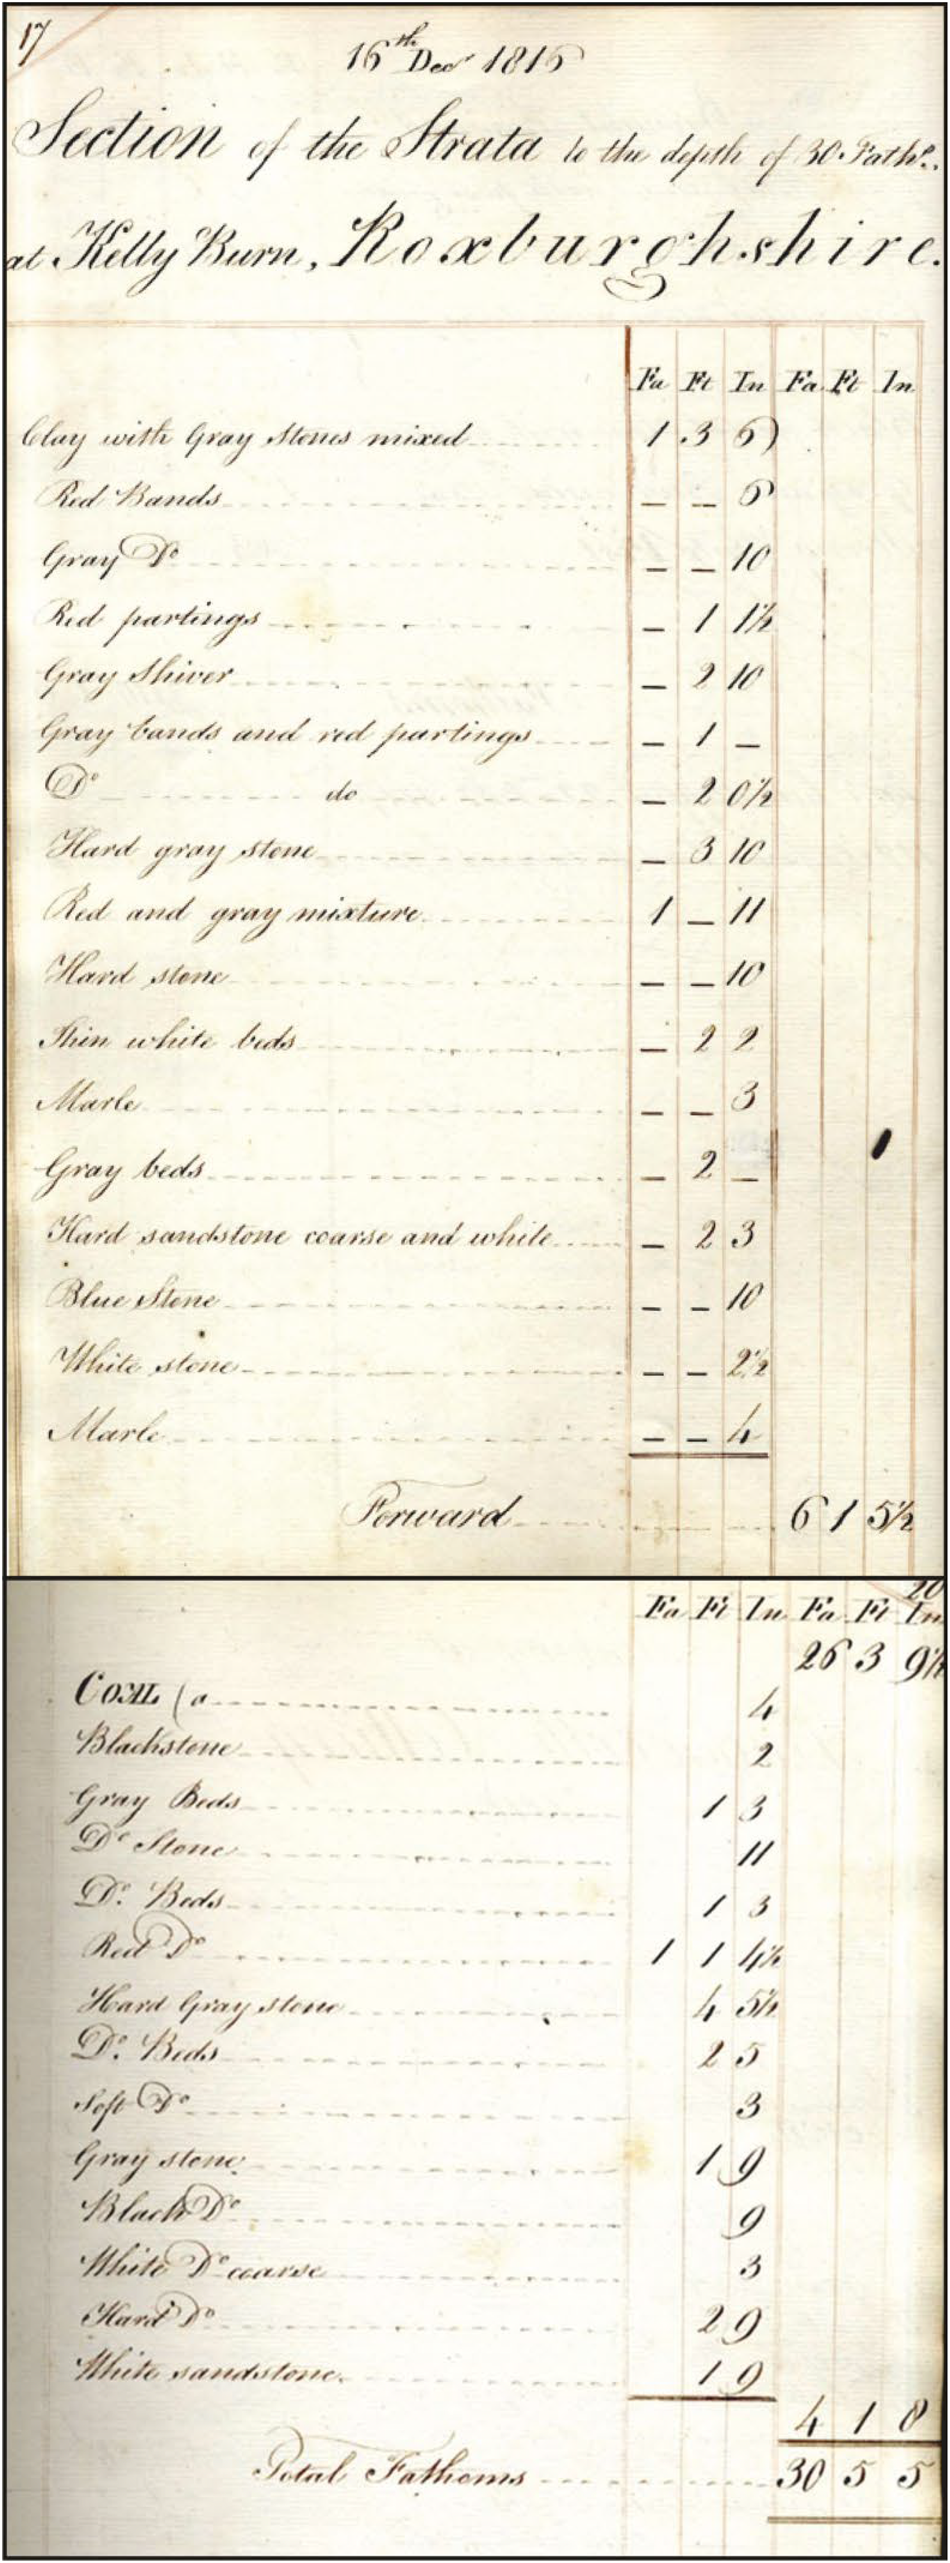 17
16th Decr 1816
Section of the Strata to the depth of 30 Faths.
at Kelly Burn, Roxburghshire.
Fa Ft In Fa Ft In
Clay with Gray Stones mixed 1 3 6
Red Bands — — 6
Gray Do — — 10
Red partings — 1 1½
Gray Shiver — 2 10
Gray bands and red partings — 1 —
Do do — 2 0½
Hard gray stone — 3 10
Red and gray mixture 1 — 11
Hard stone — — 10
Thin white beds — 2 2
Marle — — 3
Gray beds — 2 —
Hard sandstone coarse and white — 2 3
Blue Stone — — 10
White stone — — 2½
Marle — — 4
Forward 6 1 5½
20
Fa Ft In Fa Ft In
26 3 9½
COAL (a 4
Blackstone 2
Gray Beds 1 3
Do Stone 11
Do. Beds 1 3
Red Do 1 1 4½
Hard Gray stone 4 5½
Do. Beds 2 5
Soft Do 3
Gray stone 1 9
Black Do 9
White Do coarse 3
Hard Do 2 9
White sandstone 1 9
4 1 8
Total Fathoms 30 5 5